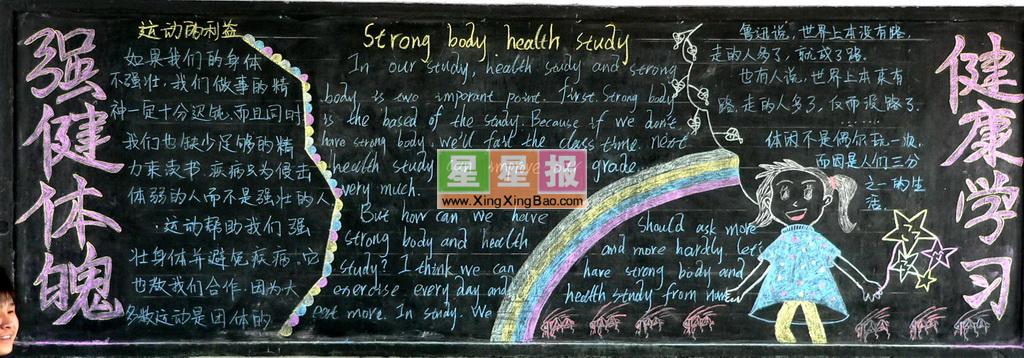 强健体魄
运动的利益
如果我们的身体
不强壮,我们做事的精
神一定十分迟钝,而且同时
我们也缺少足够的精
力来读书 疾病只为侵击
体弱的人而不是强壮的人
,运动帮助我们强
壮身体并避免疾病,它
也教我们合作,因为大
多数运动是团体的
Strong body health study
In our study, health study and strong
body is two imporant point. first. Strong body
is the based of the study. Because if we don't
have strong body, we'll fast the class time. next
health study can improve our grade
very much.
But how can we have
strong body and health
study? I think we can
exercise every day and
eat more. In sandy. We
Should ask more
and more hardly. let's
have strong body and
health study from now
鲁迅说,世界上本没有路
走的人多了,就成了路.
也有人说,世界上本来有
路,走的人多了,反而没路了.
体因不是偶尔玩一次,
而因是人们三分
之一的生
活.
健康学习
星星报
www.XingXingBao.com